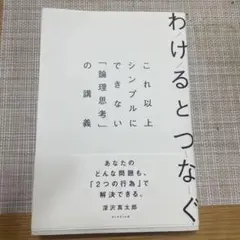 わけるとつなぐ
これ以上
シンプルに
できない
「論理思考」
の講義
あなたの
どんな問題も、
「2つの行為」で
解決できる。
深沢真太郎
ダイヤモンド社